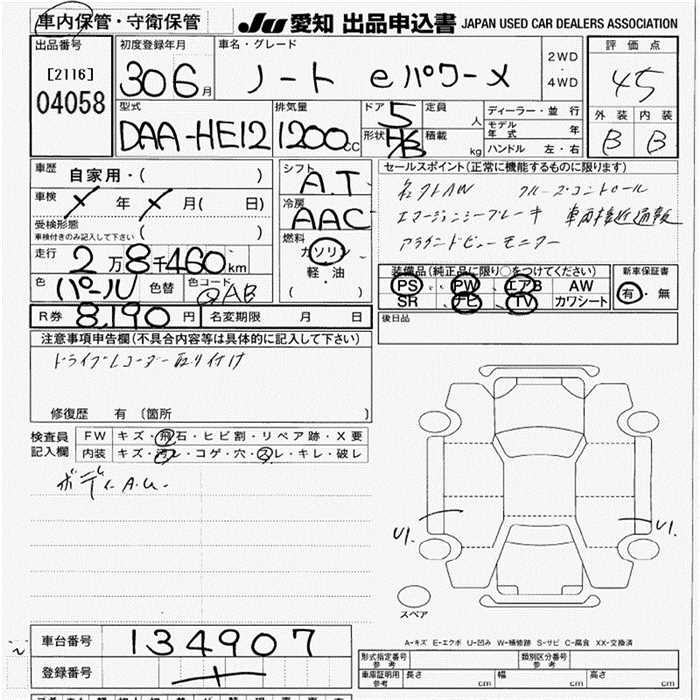 車内保管・守衛保管
JU 愛知 出品申込書 JAPAN USED CAR DEALERS ASSOCIATION
出品番号
[2116]
04058
初度登録年月
30 6月
車名・グレード
ノート eパワーメ
2WD
・
4WD
評価点
4.5
外装 内装
B B
型式
DAA-HE12
排気量
1200cc
ドア
5
定員
人
形状
H/B
積載
kg
ディーラー・並行
モデル年式 年
ハンドル 左・右
車歴
自家用・( )
車検
年 月( 日)
受検形態
車検付きのみ記入して下さい ( )
走行
2万8千460km
色
パール
色替
色コード
QAB
シフト
A.T
冷房
AAC
燃料
ガソリン
軽・油
( )
セールスポイント(正常に機能するものに限ります)
クルーズコントロール
エマージェンシーブレーキ 車両接近通報
アラウンドビューモニター
装備品(純正品に限り○をつけてください)
PS PW エアB AW
SR ナビ TV カワシート
新車保証書
有・無
R券
8,190円
名変期限 月 日
後日品
注意事項申告欄(不具合内容等は具体的に記入して下さい)
ドライブレコーダー取り付け
修復歴 有 〔箇所 〕
検査員
記入欄
FW キズ・飛石・ヒビ割・リペア跡・X要
内装 キズ・汚レ・コゲ・穴・スレ・キレ・破レ
ボディA.U.
U1.
U1.
スペア
A-キズ E-エクボ U-凹み W-補修跡 S-サビ C-腐食 XX-交換済
車台番号
134907
登録番号
形式指定番号
参考
類別区分番号
参考
車庫証明用
参考
長さ cm
幅 cm
高さ cm